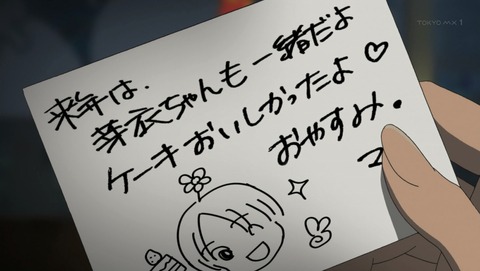 TOKYO MX 1
来年は、
芽衣ちゃんも一緒だよ
ケーキおいしかったよ♡
おやすみ。